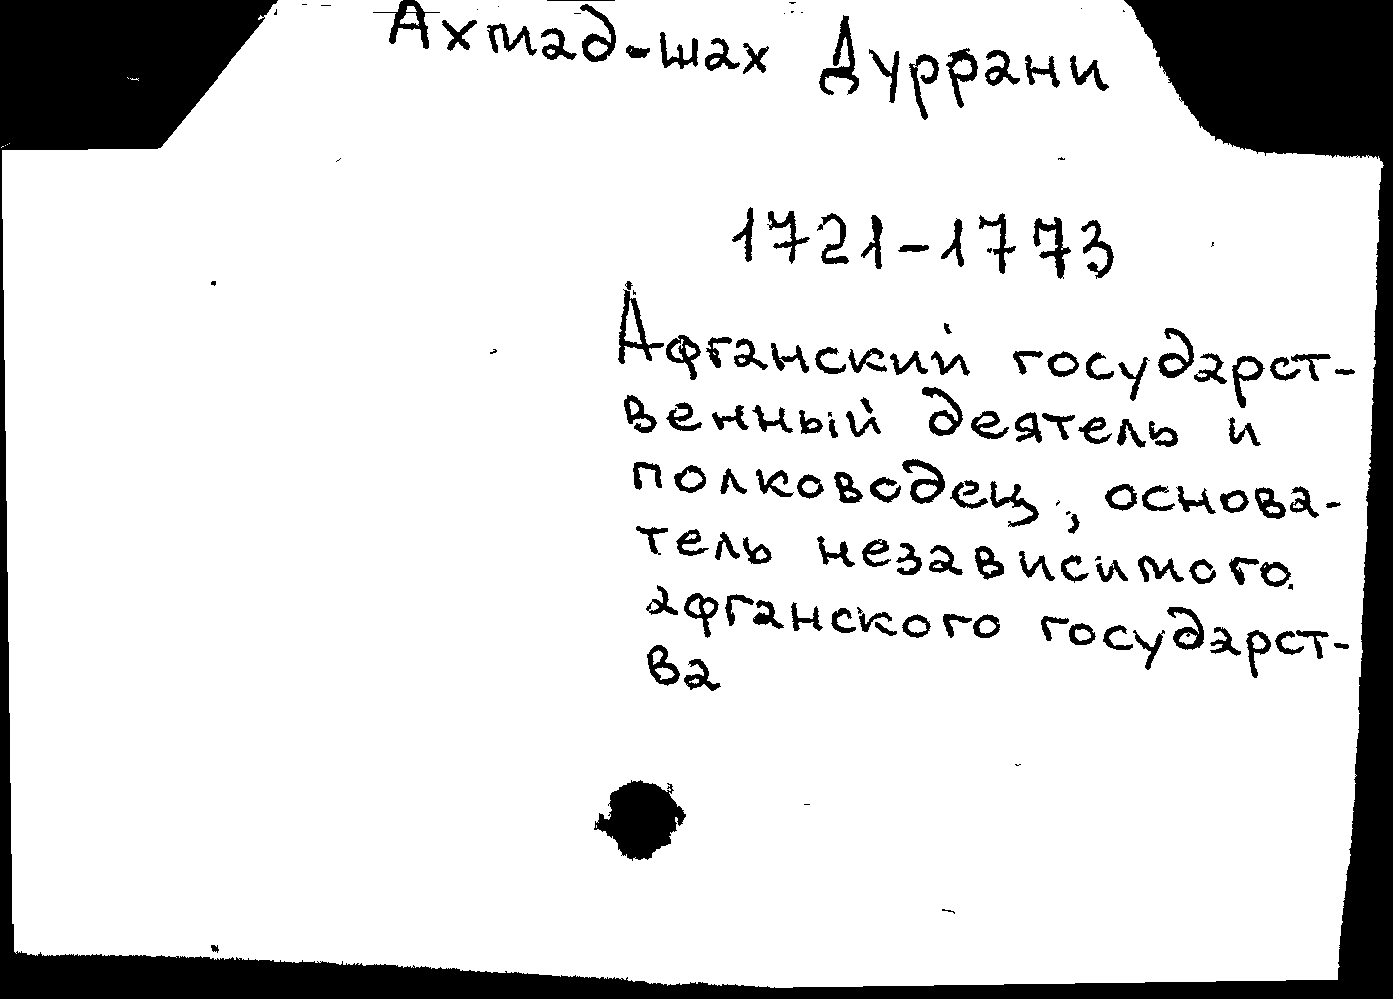 Ахмад-шах Дуррани
1721-1773
Афганский государст-
венный деятель и
полководец, основа-
тель независимого
афганского государст-
ва